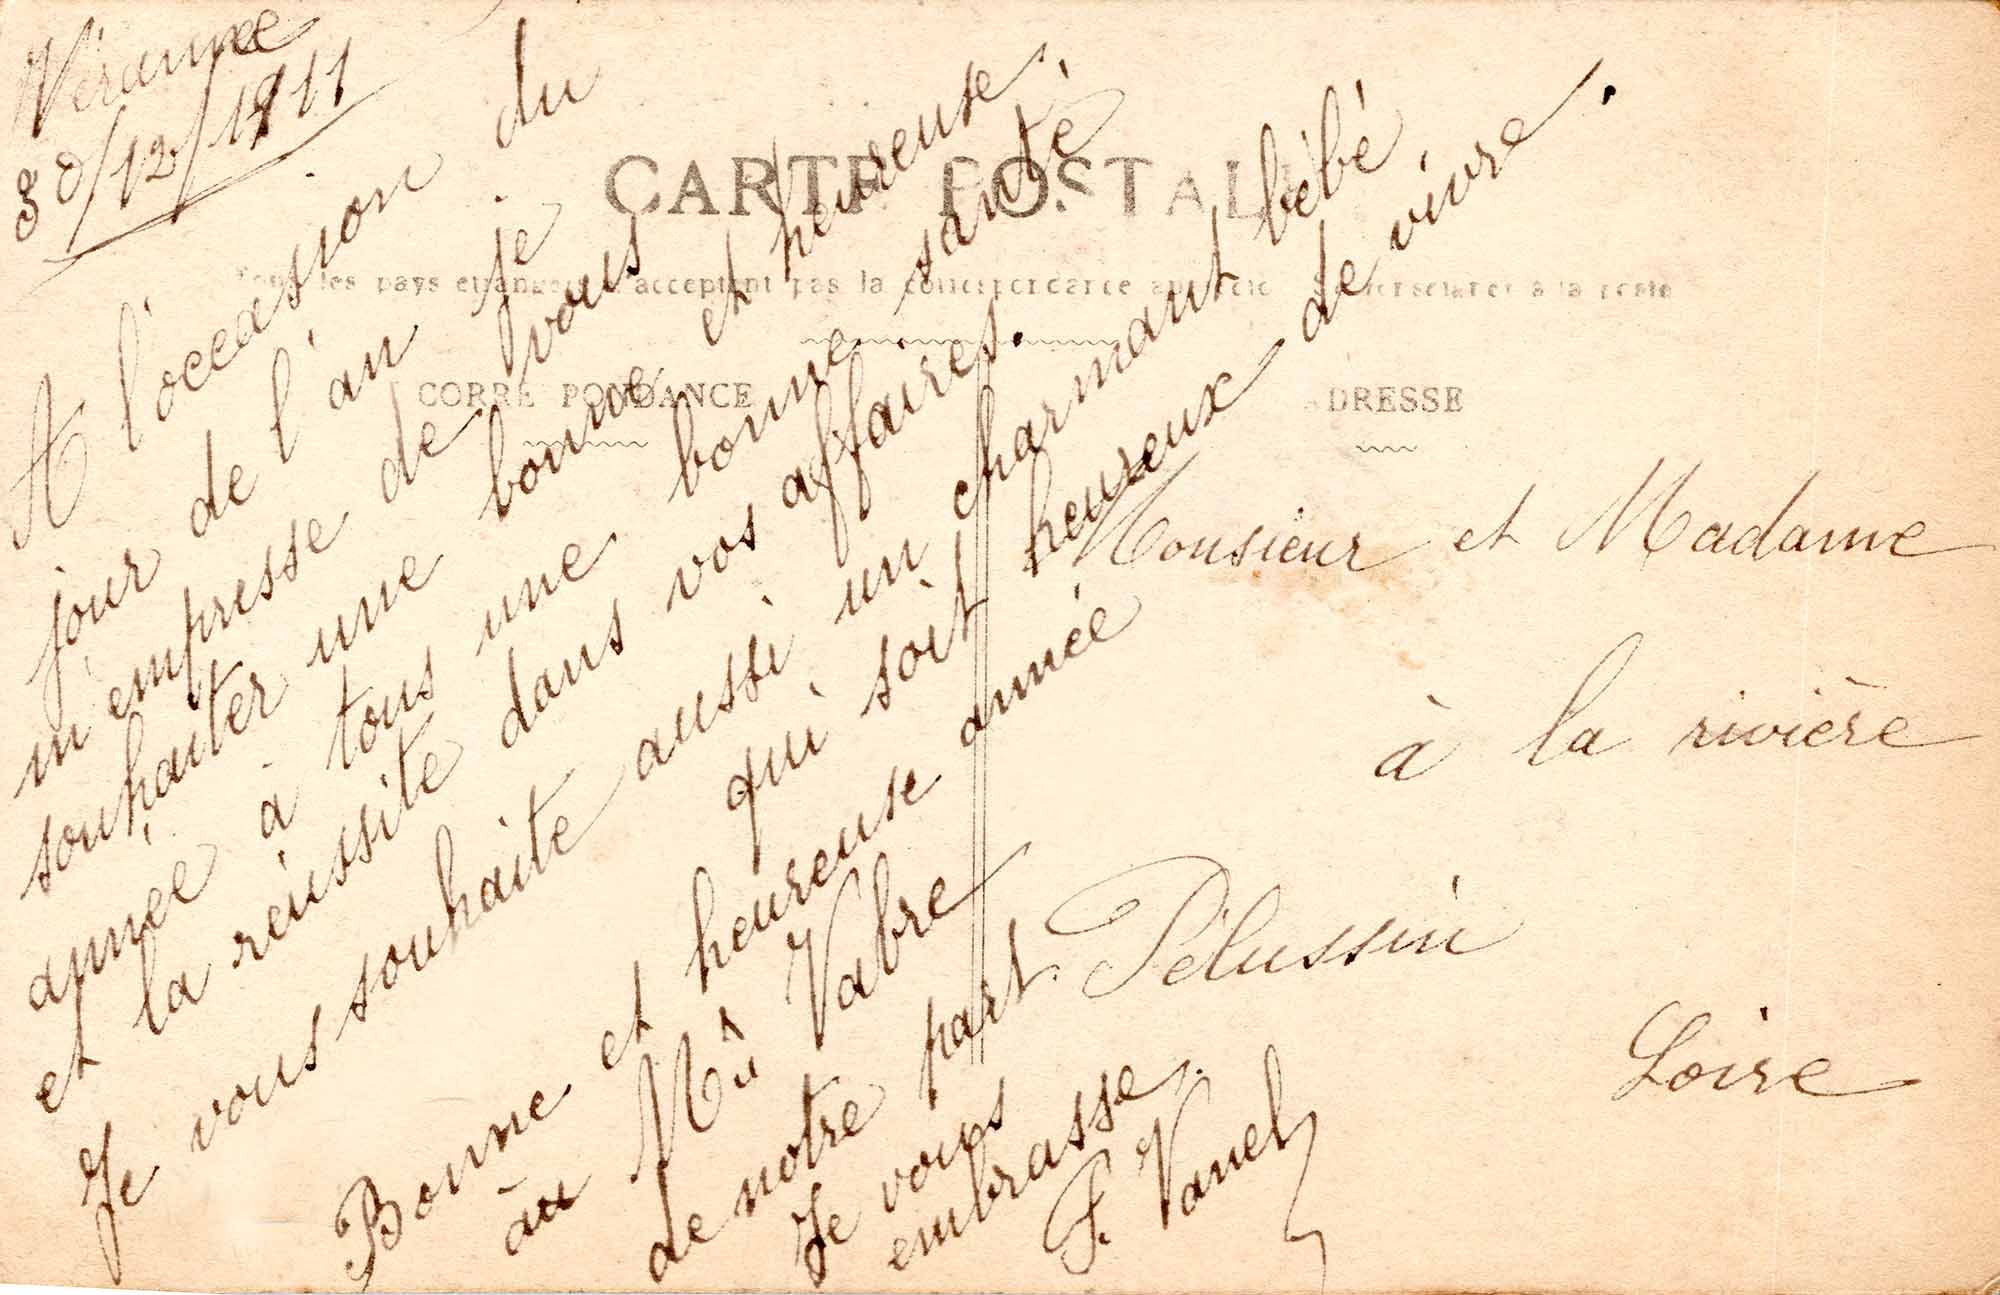 Véranne
30/12/1911
CARTE POSTALE
Tous les pays étrangers n'acceptent pas la correspondance au recto
à la poste
CORRESPONDANCE
ADRESSE
A l'occasion du
jour de l'an je
m'empresse de vous
souhaiter une bonne et heureuse
année à tous une bonne santé
et la réussite dans vos affaires.
Je vous souhaite aussi un charmant bébé
qui soit heureux de vivre.
Bonne et heureuse année
à Vabre
de notre part.
Je vous
embrasse.
Vanel
Monsieur et Madame
à la rivière
Pélussin
Loire